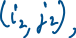 (i₂, j₂),